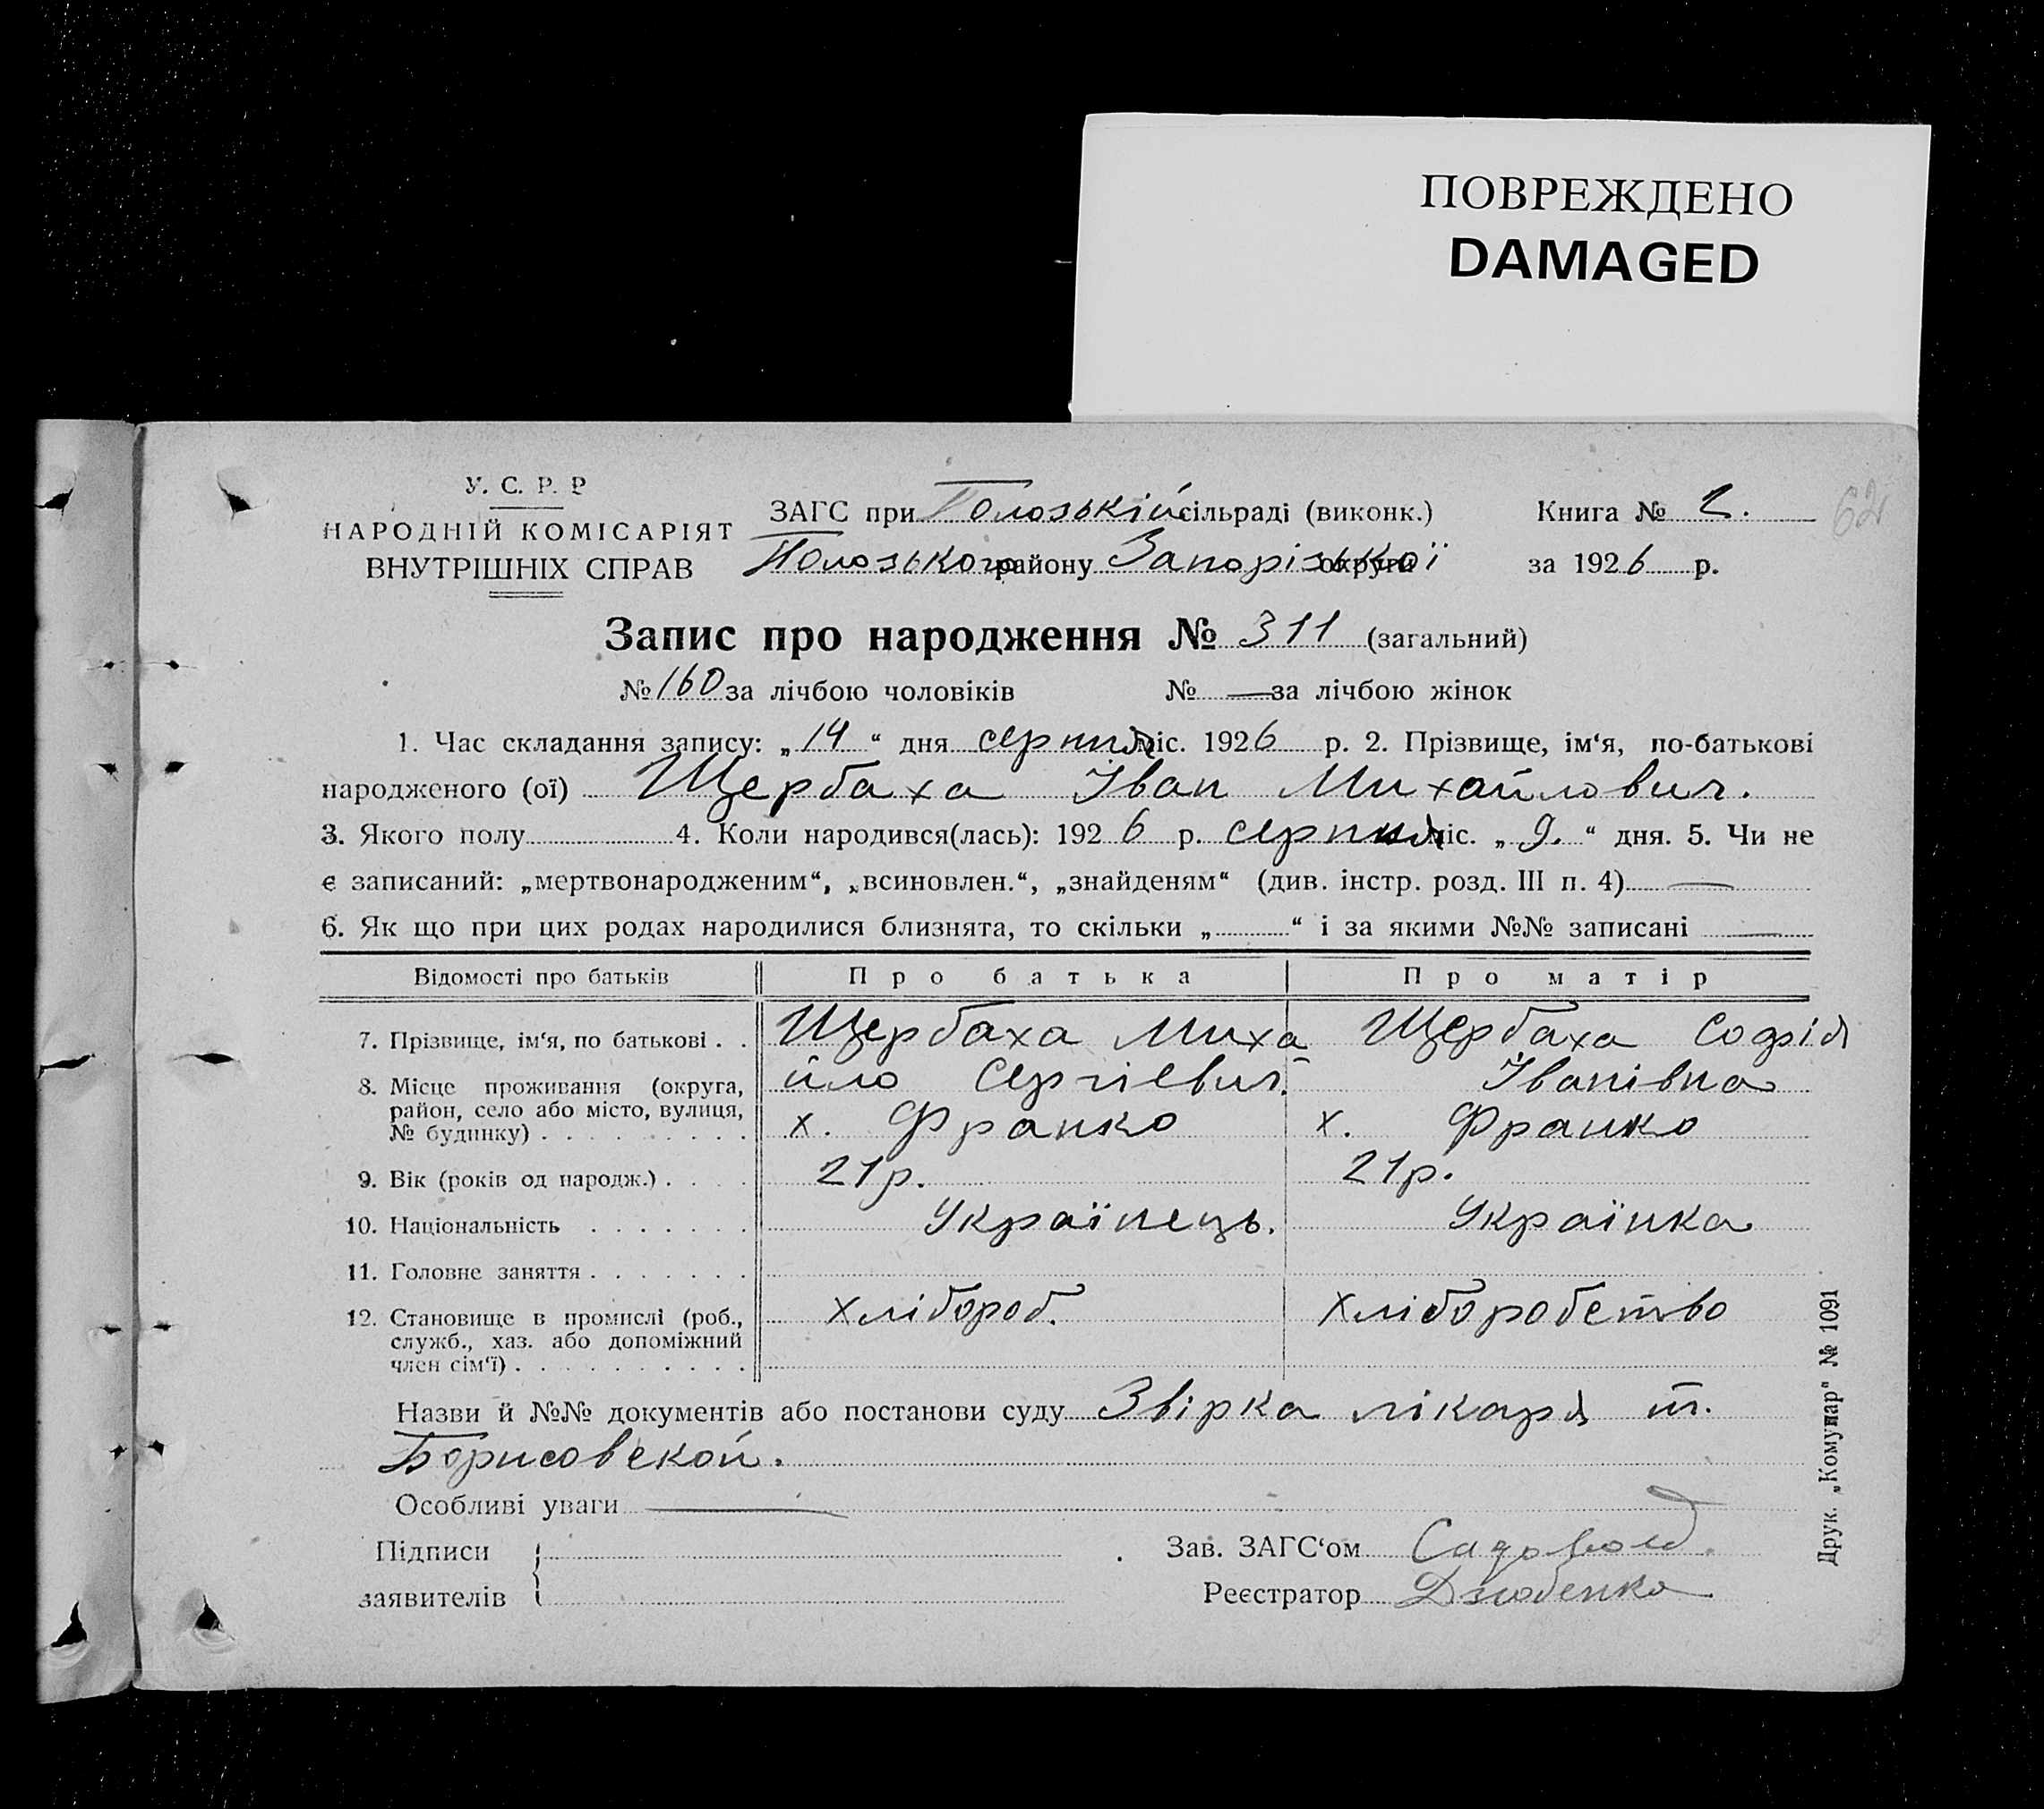 ПОВРЕЖДЕНО
DAMAGED
У. С. Р. Р
НАРОДНІЙ КОМІСАРІЯТ
ВНУТРІШНІХ СПРАВ
ЗАГС при Пологській сільраді (виконк.)
Пологського району Запорізької округи
Книга № 2.
за 1926 р.
62
Запис про народження № 311 (загальний)
№ 160 за лічбою чоловіків № — за лічбою жінок
1. Час складання запису: „14“ дня серпня міс. 1926 р. 2. Прізвище, ім‘я, по-батькові
народженого (ої) Щербаха Іван Михайлович.
3. Якого полу 4. Коли народився(лась): 1926 р. серпня міс. „9.“ дня. 5. Чи не
є записаний: „мертвонародженим“, „всиновлен.“, „знайденям“ (див. інстр. розд. III п. 4) —
6. Як що при цих родах народилися близнята, то скільки „ “ і за якими №№ записані —
Відомості про батьків Про батька Про матір
7. Прізвище, ім‘я, по батькові . . Щербаха Миха Щербаха Софія
8. Місце проживання (округа, йло Сергієвич. Іванівна
район, село або місто, вулиця,
№ будинку) . . . . . . . . . х. Франко х. Франко
9. Вік (років од народж.) . . . . 21р. 21р.
10. Національність . . . . . . . Українець. Українка
11. Головне заняття . . . . . . .
12. Становище в промислі (роб., хлібороб. хліборобство
служб., хаз. або допоміжний
член сім‘ї) . . . . . . . . . .
Назви й №№ документів або постанови суду Звірка лікаря т.
Борисовской.
Особливі уваги —
Підписи
заявителів
Зав. ЗАГС‘ом
Реєстратор Дзюбенко
Друк. „Комунар“ № 1091